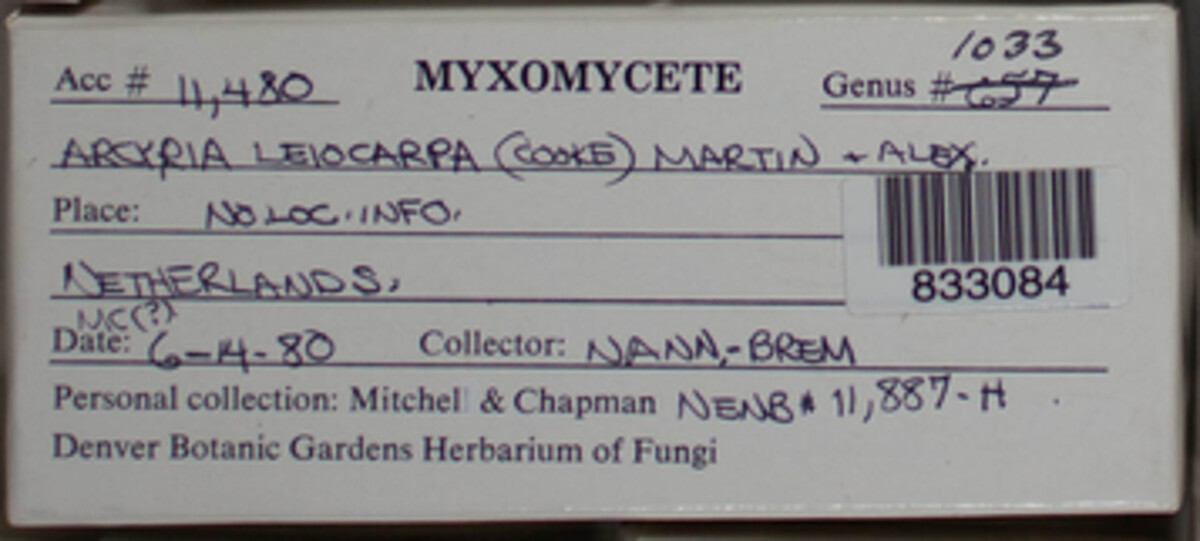 1033
Acc # 11,480 MYXOMYCETE Genus # 657
ARCYRIA LEIOCARPA (COOKE) MARTIN + ALEX.
Place: NO LOC. INFO.
NETHERLANDS,
833084
NC(?)
Date: 6-14-80 Collector: NANN.-BREM
Personal collection: Mitchel & Chapman NENB# 11,887-H
Denver Botanic Gardens Herbarium of Fungi